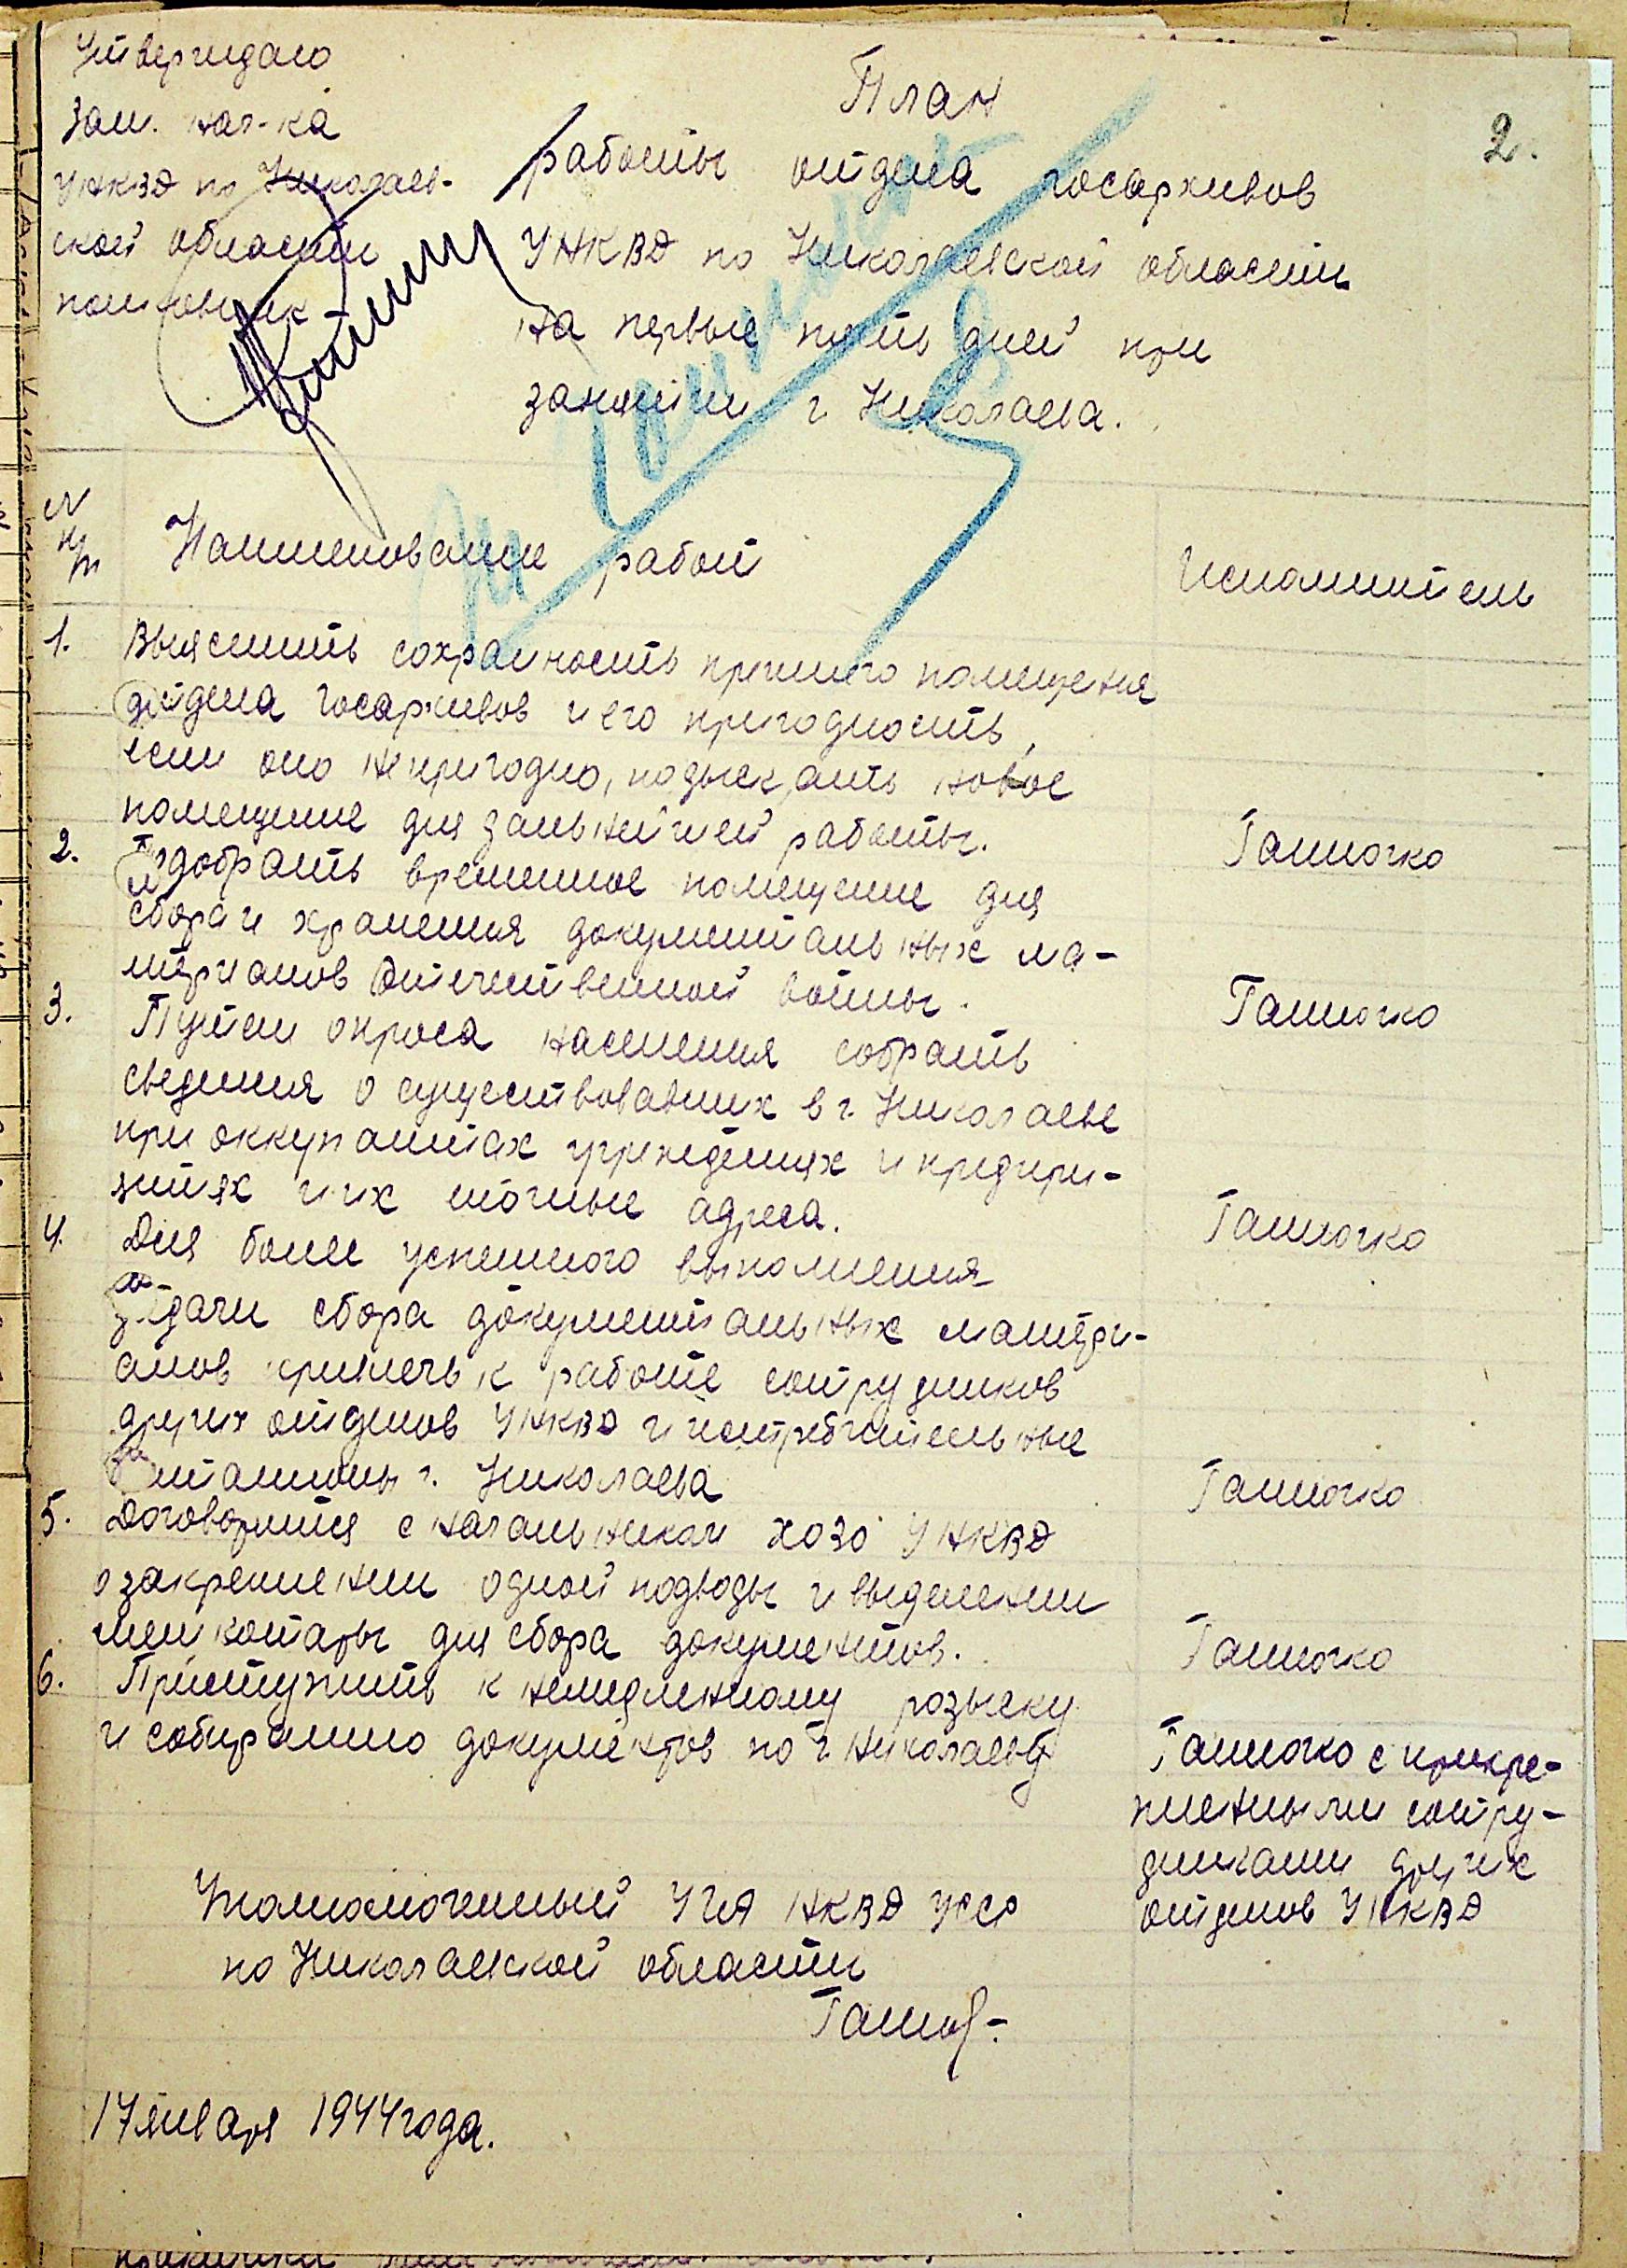 Утверждаю
Зам. нач-ка
УНКВД по Николаев-
ской области
полковник
2.
План
работы отдела госархивов
УНКВД по Николаевской области
на первые пять дней при
занятии г Николаева.
N
п/п
Наименование работ
Исполнитель
1.
Выяснить сохранность прежнего помещения
отдела Госархивов и его пригодность,
если оно непригодно, подыскать новое
помещение для дальнейшей работы.
Ганночко
2.
Подобрать временное помещение для
сбора и хранения документальных ма-
териалов Отечественной войны.
Ганночко
3.
Путем опроса населения собрать
сведения о существовавших в г. Николаеве
при оккупантах учреждениях и предпри-
ятиях и их точные адреса.
Ганночко
4.
Для более успешного выполнения
задачи сбора документальных матери-
алов привлечь к работе сотрудников
других отделов УНКВД и истребительные
батальоны г. Николаева
Ганночко
5.
Договорится с начальником ХОЗО УНКВД
о закреплении одной подводы и выделении
мешкотары для сбора документов.
Ганночко
6.
Приступить к немедленному розыску
и собиранию документов по г Николаеву
Ганночко с прикре-
пленными сотру-
дниками других
отделов УНКВД
Уполномоченный УГА НКВД УССР
по Николаевской области
17 января 1944 года.